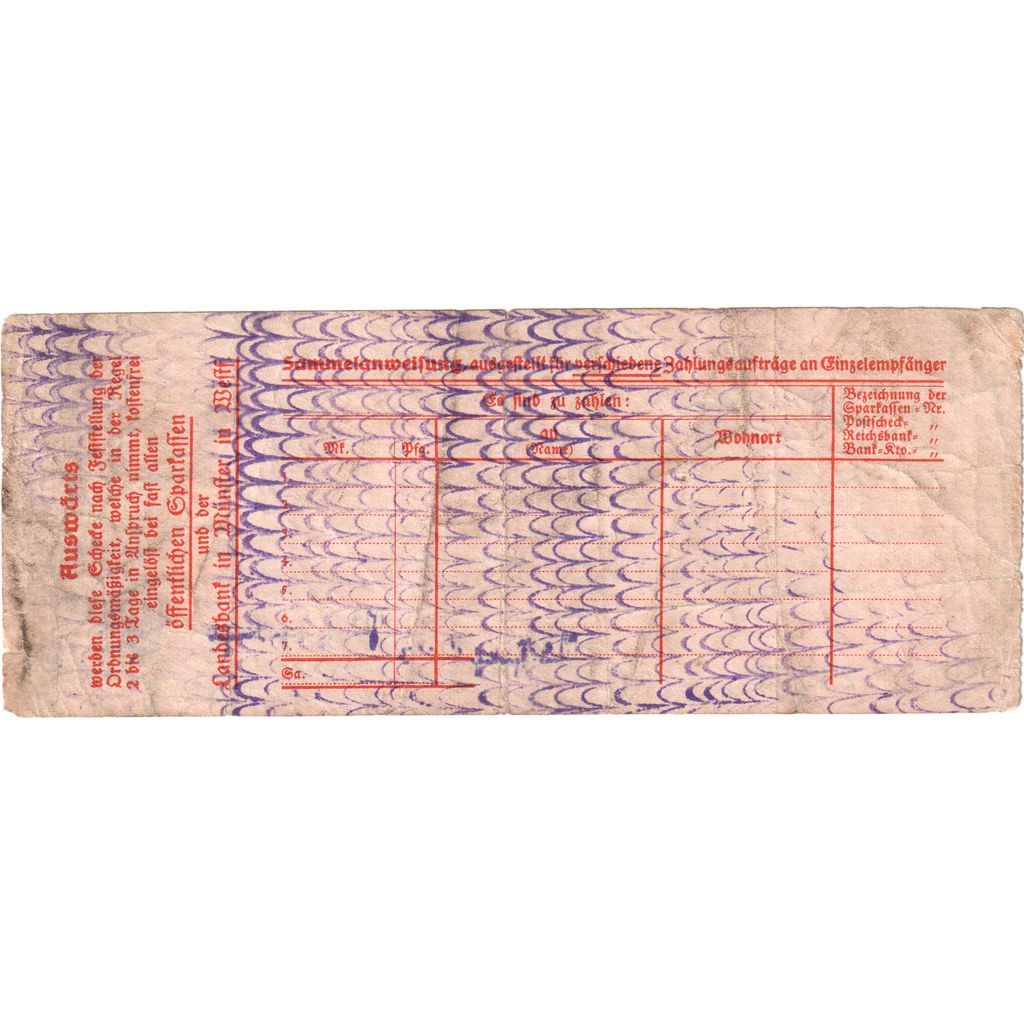 Auswärts
werden diese Schecke nach Feststellung der
Ordnungsmäßigkeit, welche in der Regel
2 bis 3 Tage in Anspruch nimmt, kostenfrei
eingelöst bei fast allen
öffentlichen Sparkassen
und der
Landesbank in Münster in Westf
Sammelanweisung, ausgestellt für verschiedene Zahlungsaufträge an Einzelempfänger
Es sind zu zahlen:
Mk. Pfg. an (Name) Wohnort
Bezeichnung der
Sparkassen-Nr.
Postscheck- „
Reichsbank- „
Bank-Kto.- „
5.
6.
7.
Sa.